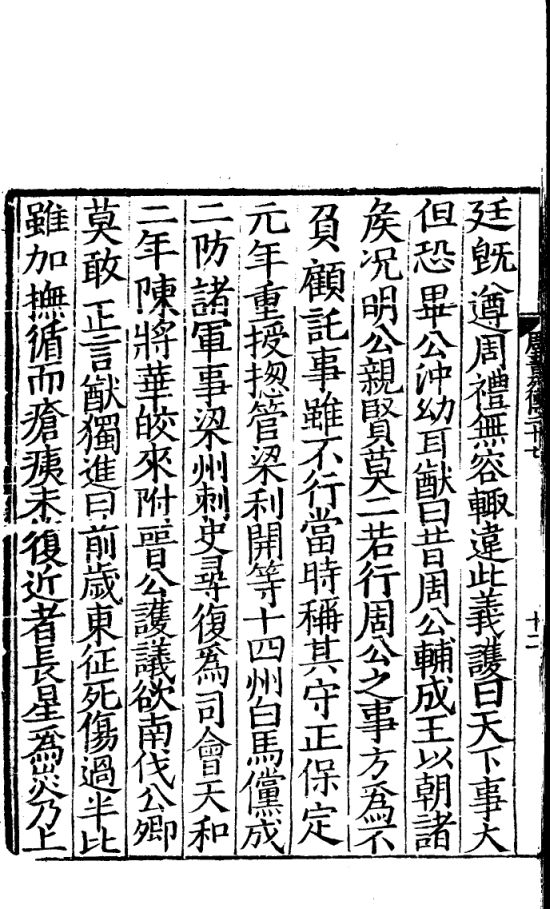 廷既遵周禮無容輙違此義護曰天下事大
但恐畢公沖幼耳猷曰昔周公輔成王以朝諸
矦况明公親賢莫二若行周公之事方爲不
負顧託事雖不行當時稱其守正保定
元年重授揔管梁利開等十四州白馬儻成
二防諸軍事梁州刺史尋復爲司會天和
二年陳將華皎來附晉公護議欲南伐公卿
莫敢正言猷獨進曰前歲東征死傷過半比
雖加撫循而瘡痍未復近者長星爲災乃上
十二